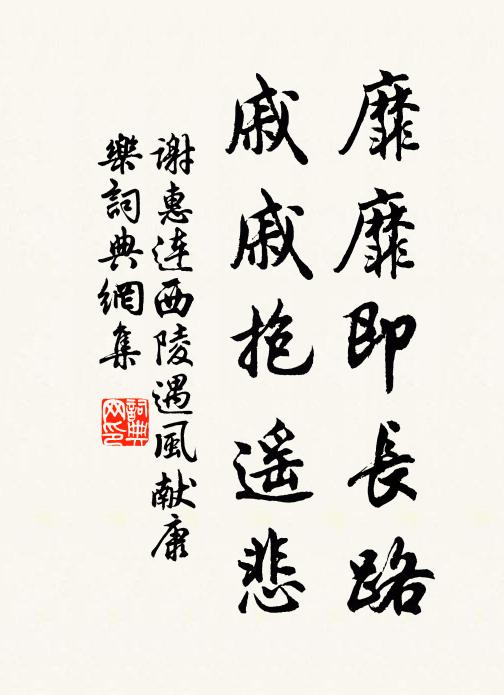 靡靡即長路
戚戚抱遥悲
谢惠连西陵遇風献康
樂詞典網集
詞典
网印